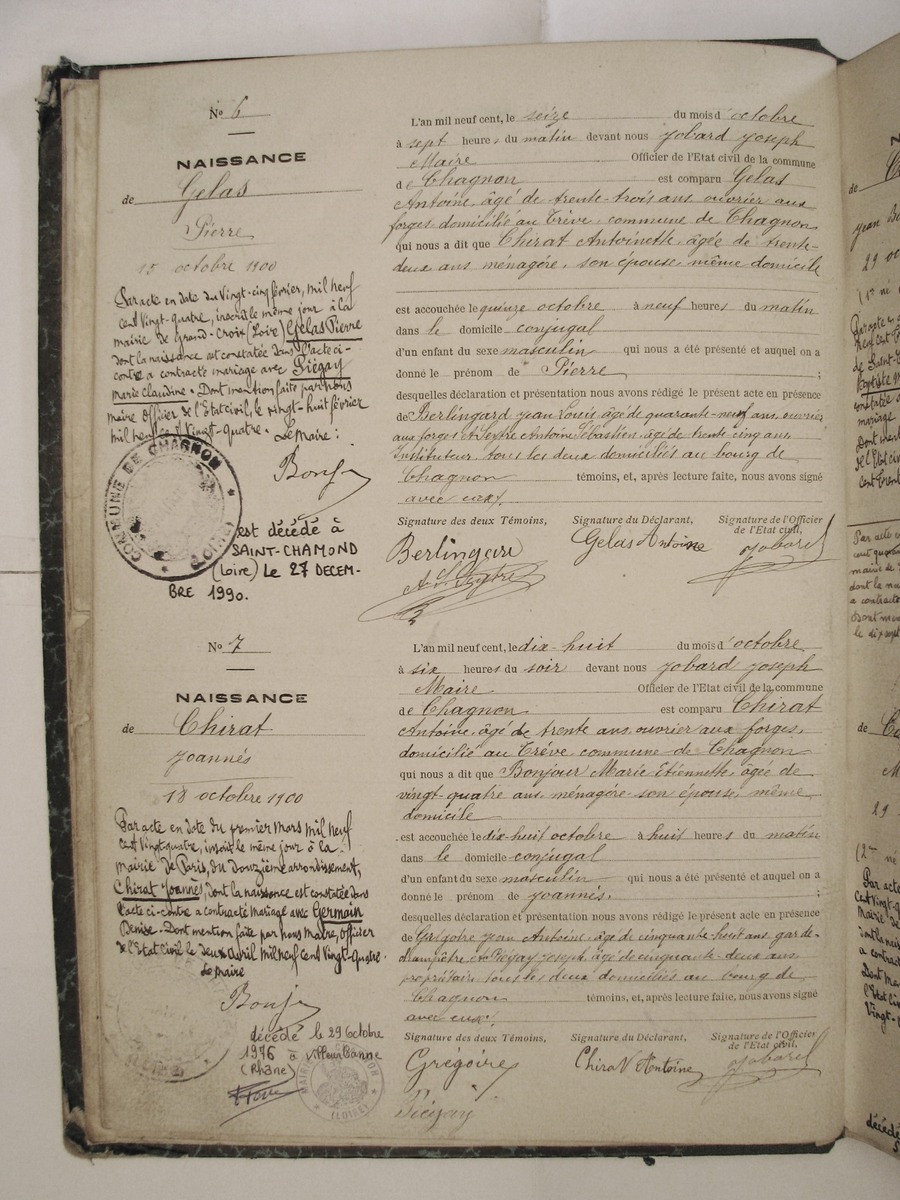 No 6
NAISSANCE
de Gelas
Pierre
15 octobre 1900
Par acte en date du Vingt-cinq février, mil neuf
cent Vingt-quatre, inscrit le même jour à la
mairie de Grand-Croix (Loire) Gelas Pierre
dont la naissance est constatée dans l'acte ci-
contre a contracté mariage avec Piégay
Marie Claudine. Dont mention faite par nous
maire officier de l'Etat civil, le vingt-huit février
mil neuf cent Vingt-quatre. Le Maire :
Bonjo
COMMUNE DE CHAGNON
(LOIRE)
est décédé à
SAINT-CHAMOND
(Loire) Le 27 DECEM-
BRE 1990.
L'an mil neuf cent, le seize du mois d'octobre
à sept heures du matin devant nous Jobard Joseph
Maire Officier de l'Etat civil de la commune
de Chagnon est comparu Gelas
Antoine, âgé de trente-trois ans ouvrier aux
forges domicilié au Crève, commune de Chagnon
qui nous a dit que Chirat Antoinette, âgée de trente-
deux ans ménagère, son épouse, même domicile
est accouchée le quinze octobre à neuf heures du matin
dans le domicile conjugal
d'un enfant du sexe masculin qui nous a été présenté et auquel on a
donné le prénom de Pierre ;
desquelles déclaration et présentation nous avons rédigé le présent acte en présence
de Berlingard Jean Louis âgé de quarante-neuf ans, ouvrier
aux forges et Antoine Sébastien, âgé de trente cinq ans
Instituteur, tous les deux domiciliés au bourg de
Chagnon témoins, et, après lecture faite, nous avons signé
avec eux.
Signature des deux Témoins, Signature du Déclarant, Signature de l'Officier
de l'Etat civil,
Berlingard Gelas Antoine Jobard
No 7
NAISSANCE
de Chirat
Joannés
18 octobre 1900
Par acte en date du premier Mars mil neuf
cent Vingt-quatre, inscrit le même jour à la
Mairie de Paris, du Douzième arrondissement,
Chirat Joannés, dont la naissance est constatée dans
l'acte ci-contre a contracté Mariage avec Germain
Denise. Dont mention faite par nous Maire, officier
de l'Etat Civil le deux Avril Mil neuf Cent Vingt-Quatre.
Le Maire
Bonjo
décédé le 29 Octobre
1976 à Villeurbanne
(Rhône)
(LOIRE)
L'an mil neuf cent, le dix-huit du mois d'octobre
à six heures du soir devant nous Jobard Joseph
Maire Officier de l'Etat civil de la commune
de Chagnon est comparu Chirat
Antoine, âgé de trente ans, ouvrier aux forges,
domicilié au Crève, commune de Chagnon
qui nous a dit que Bonjour Marie Etiennette, âgée de
vingt-quatre ans, ménagère son épouse, même
domicile
est accouchée le dix-huit octobre à huit heures du matin
dans le domicile conjugal
d'un enfant du sexe masculin qui nous a été présenté et auquel on a
donné le prénom de Joannés. ;
desquelles déclaration et présentation nous avons rédigé le présent acte en présence
de Grégoire Jean Antoine, âgé de cinquante-huit ans, garde-
champêtre, et Piégay Joseph âgé de cinquante-deux ans
propriétaire tous les deux domiciliés au bourg de
Chagnon témoins, et, après lecture faite, nous avons signé
avec eux.
Signature des deux Témoins, Signature du Déclarant, Signature de l'Officier
de l'Etat civil,
Grégoire Chirat Antoine Jobard
Piégay